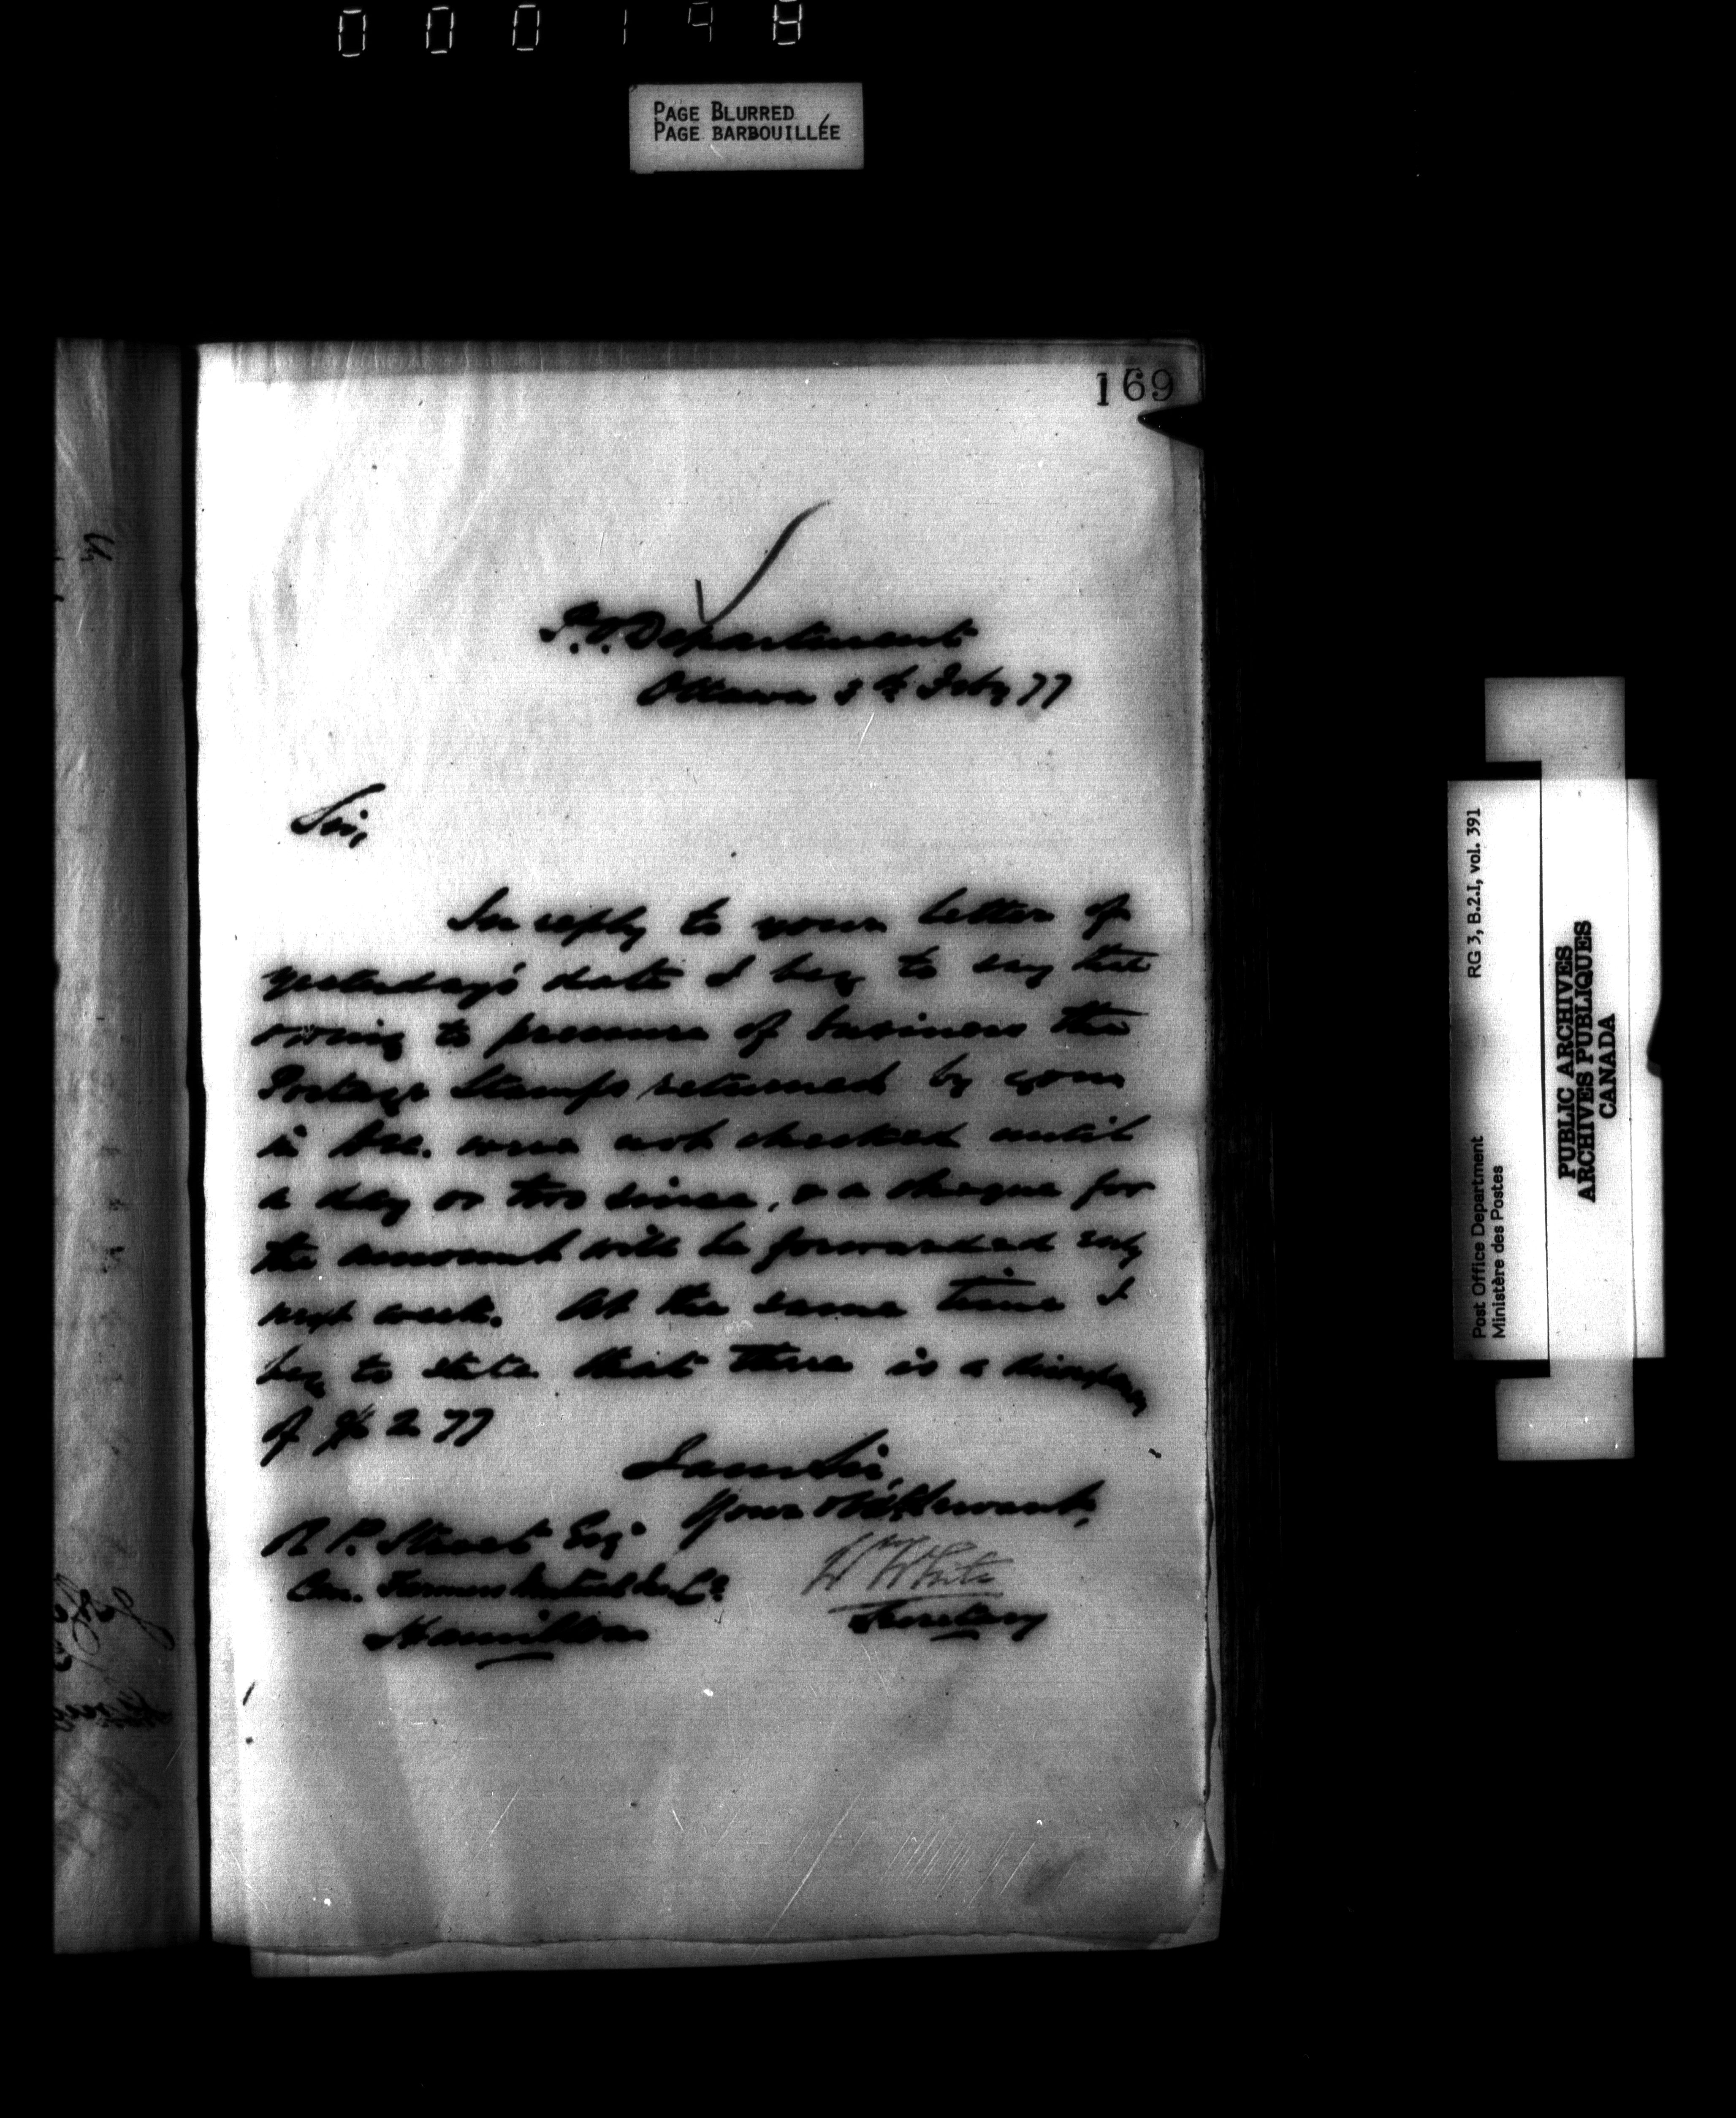 000198
PAGE BLURRED
PAGE BARBOUILLÉE
169
P.O. Department
Ottawa 3th Feby 77
Sir,
In reply to your letter of
yesterday's date I beg to say that
owing to pressure of business the
Postage Stamps returned by you
in Dec. were not checked until
a day or two since, & a cheque for
the amount will be forwarded early
next week. At the same time I
beg to state that there is a
of $2.77
I am Sir,
Your Obdt Servant,
R P. Street Esq.
Can. Farmers Mutual Ins Co
Hamilton
Wm White
Secretary
RG 3, B.2.I, vol. 391
Post Office Department
Ministère des Postes
PUBLIC ARCHIVES
ARCHIVES PUBLIQUES
CANADA